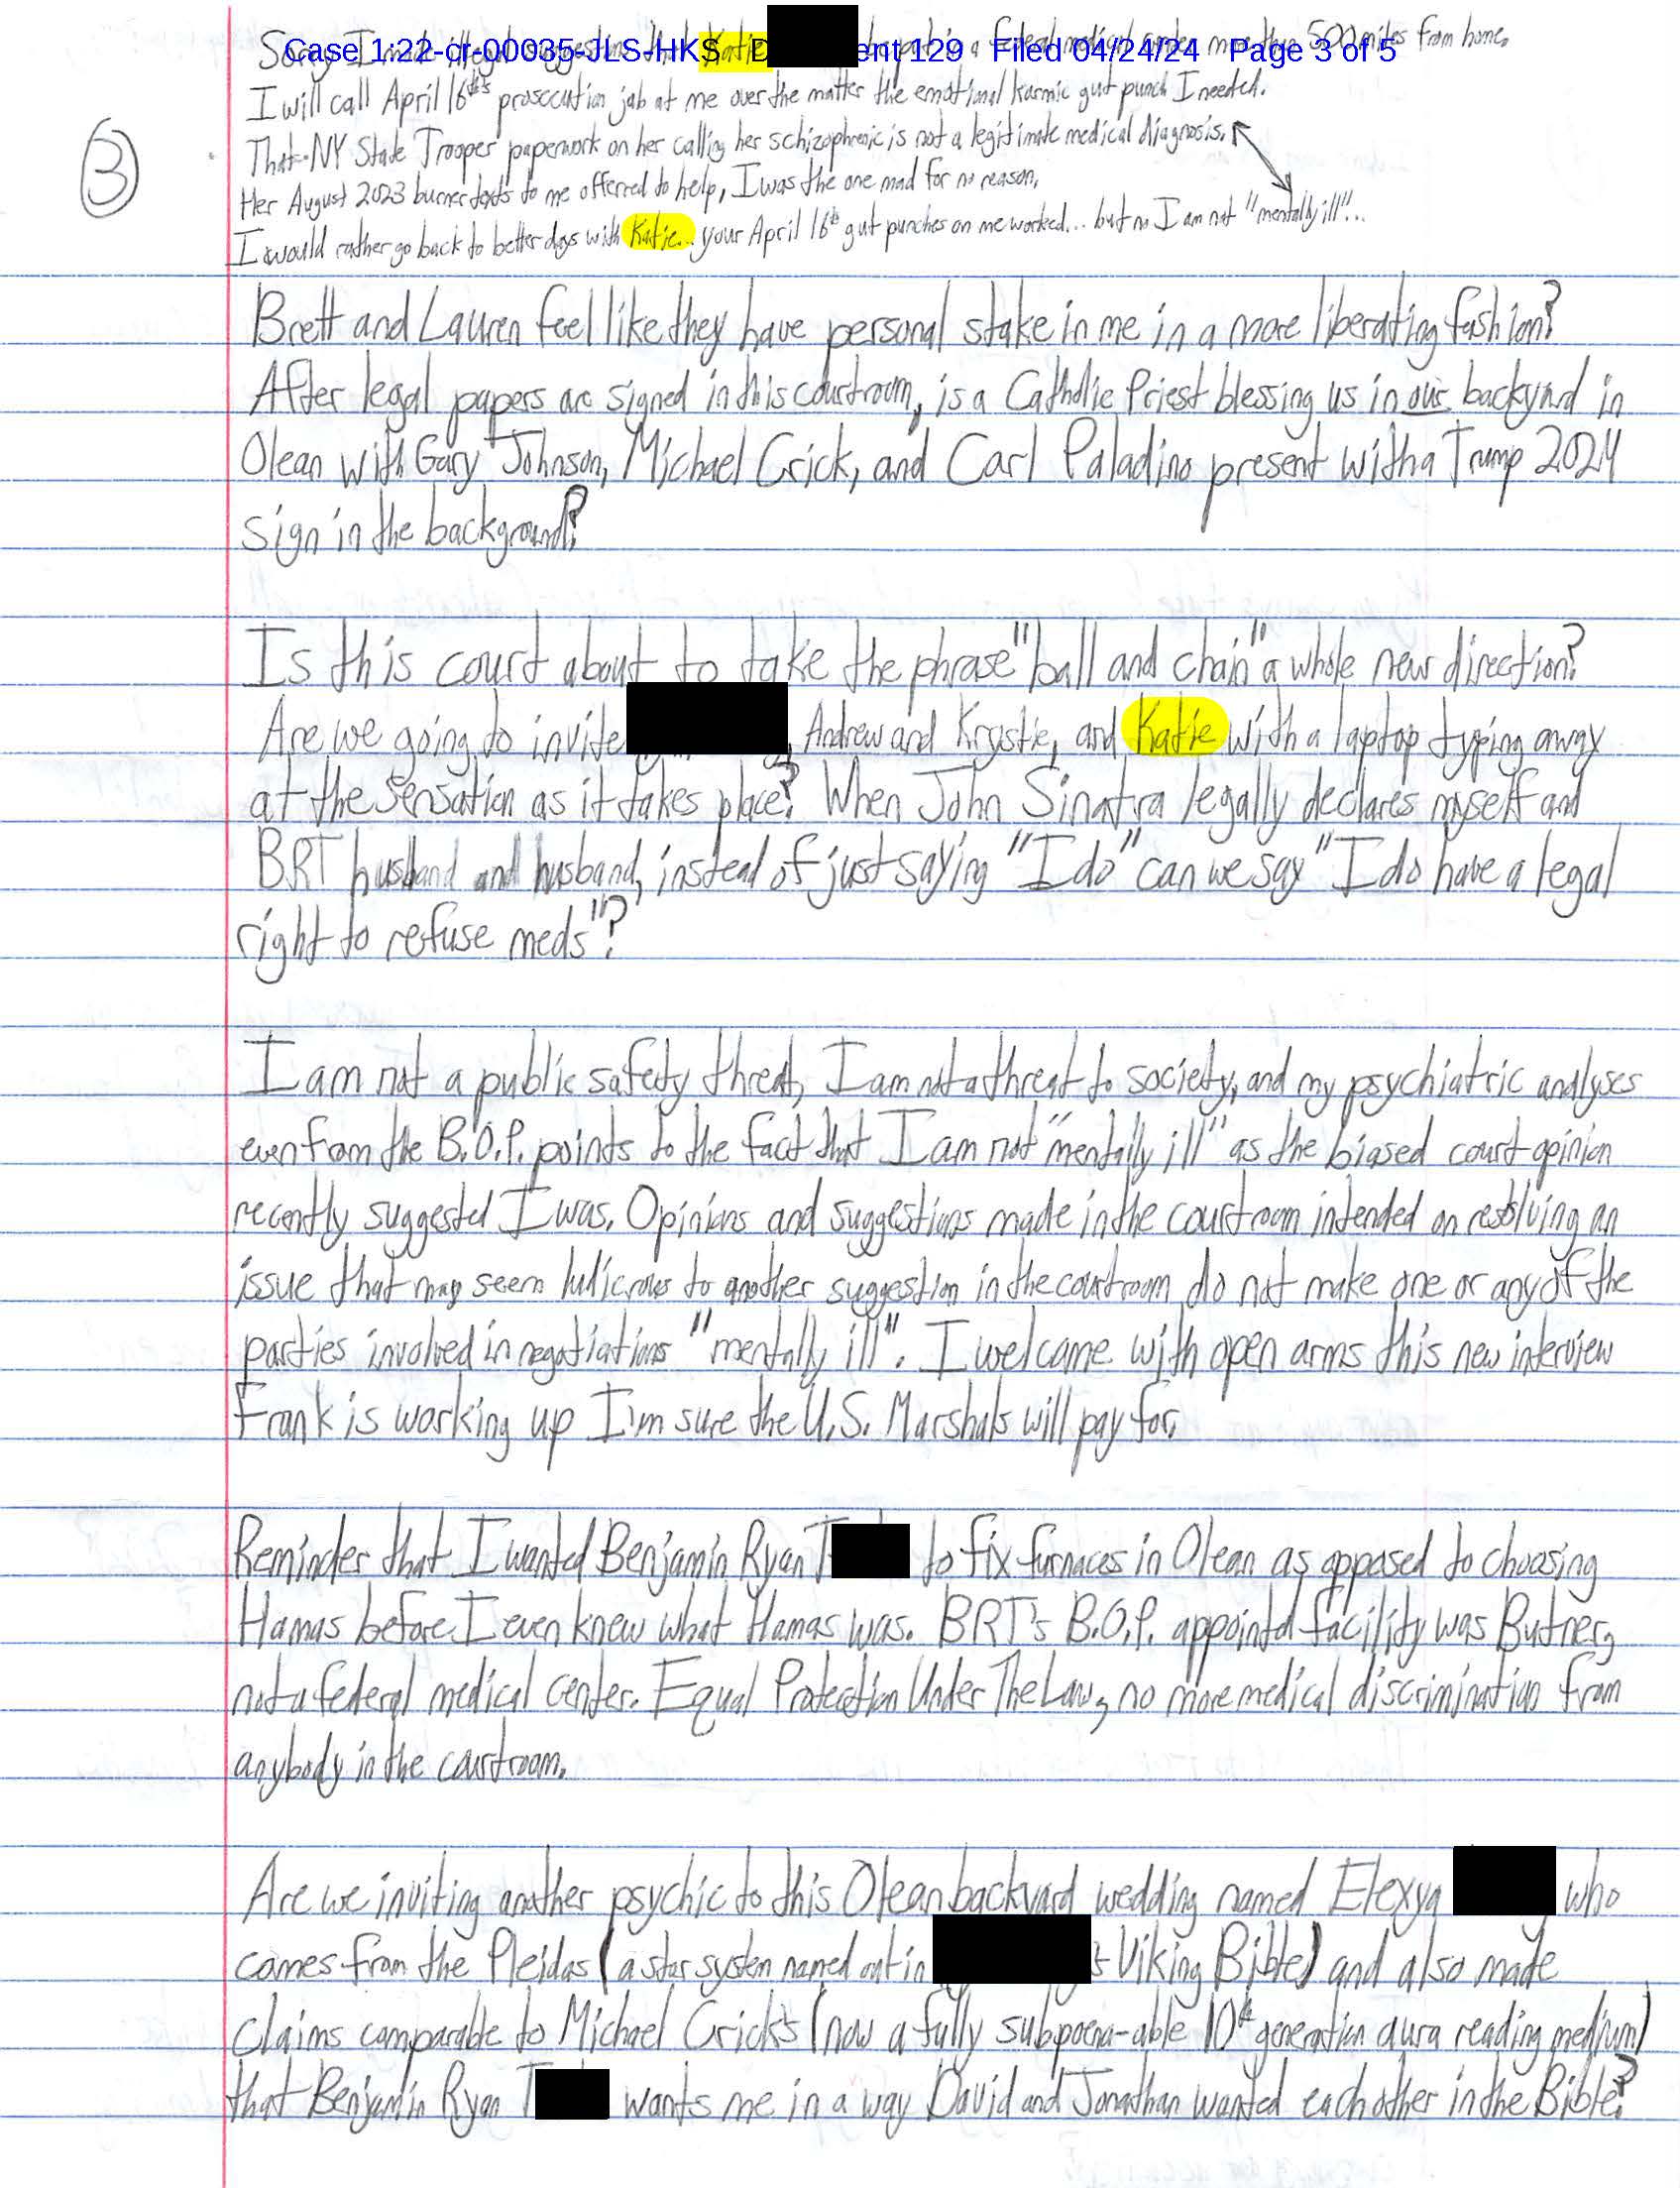 Case 1:22-cr-00035-JLS-HKS D ent 129 Filed 04/24/24 Page 3 of 5
Sorry I made illegal suggestions that Katie be put in a federal medical center more than 500 miles from home.
I will call April 16th's prosecution jab at me over the matter the emotional karmic gut punch I needed.
3
That NY State Trooper paperwork on her calling her schizophrenic is not a legitimate medical diagnosis.
Her August 2023 burner texts to me offerred to help, I was the one mad for no reason.
I would rather go back to better days with Katie... your April 16th gut punches on me worked... but no I am not "mentally ill"...
Brett and Lauren feel like they have personal stake in me in a more liberating fashion?
After legal papers are signed in this courtroom, is a Catholic Priest blessing us in our backyard in
Olean with Gary Johnson, Michael Crick, and Carl Paladino present with a Trump 2024
sign in the background?
Is this court about to take the phrase "ball and chain" a whole new direction?
Are we going to invite , Andrew and Krystie, and Katie with a laptop typing away
at the sensation as it takes place? When John Sinatra legally declares myself and
BRT husband and husband, instead of just saying "I do" can we say "I do have a legal
right to refuse meds"?
I am not a public safety threat, I am not a threat to society, and my psychiatric analyses
even from the B.O.P. points to the fact that I am not "mentally ill" as the biased court opinion
recently suggested I was. Opinions and suggestions made in the courtroom intended on resolving an
issue that may seem ludicrous to another suggestion in the courtroom do not make one or any of the
parties involved in negotiations "mentally ill". I welcome with open arms this new interview
Frank is working up I'm sure the U.S. Marshals will pay for.
Reminder that I wanted Benjamin Ryan T to fix furnaces in Olean as opposed to choosing
Hamas before I even knew what Hamas was. BRT's B.O.P. appointed facility was Butner,
not a federal medical center. Equal Protection Under The Law, no more medical discrimination from
anybody in the courtroom.
Are we inviting another psychic to this Olean backyard wedding named Elexya who
comes from the Pleidas (a star system named out in 's Viking Bible) and also made
claims comparable to Michael Crick's (now a fully subpoena-able 10th generation aura reading medium)
that Benjamin Ryan T wants me in a way David and Jonathan wanted each other in the Bible?